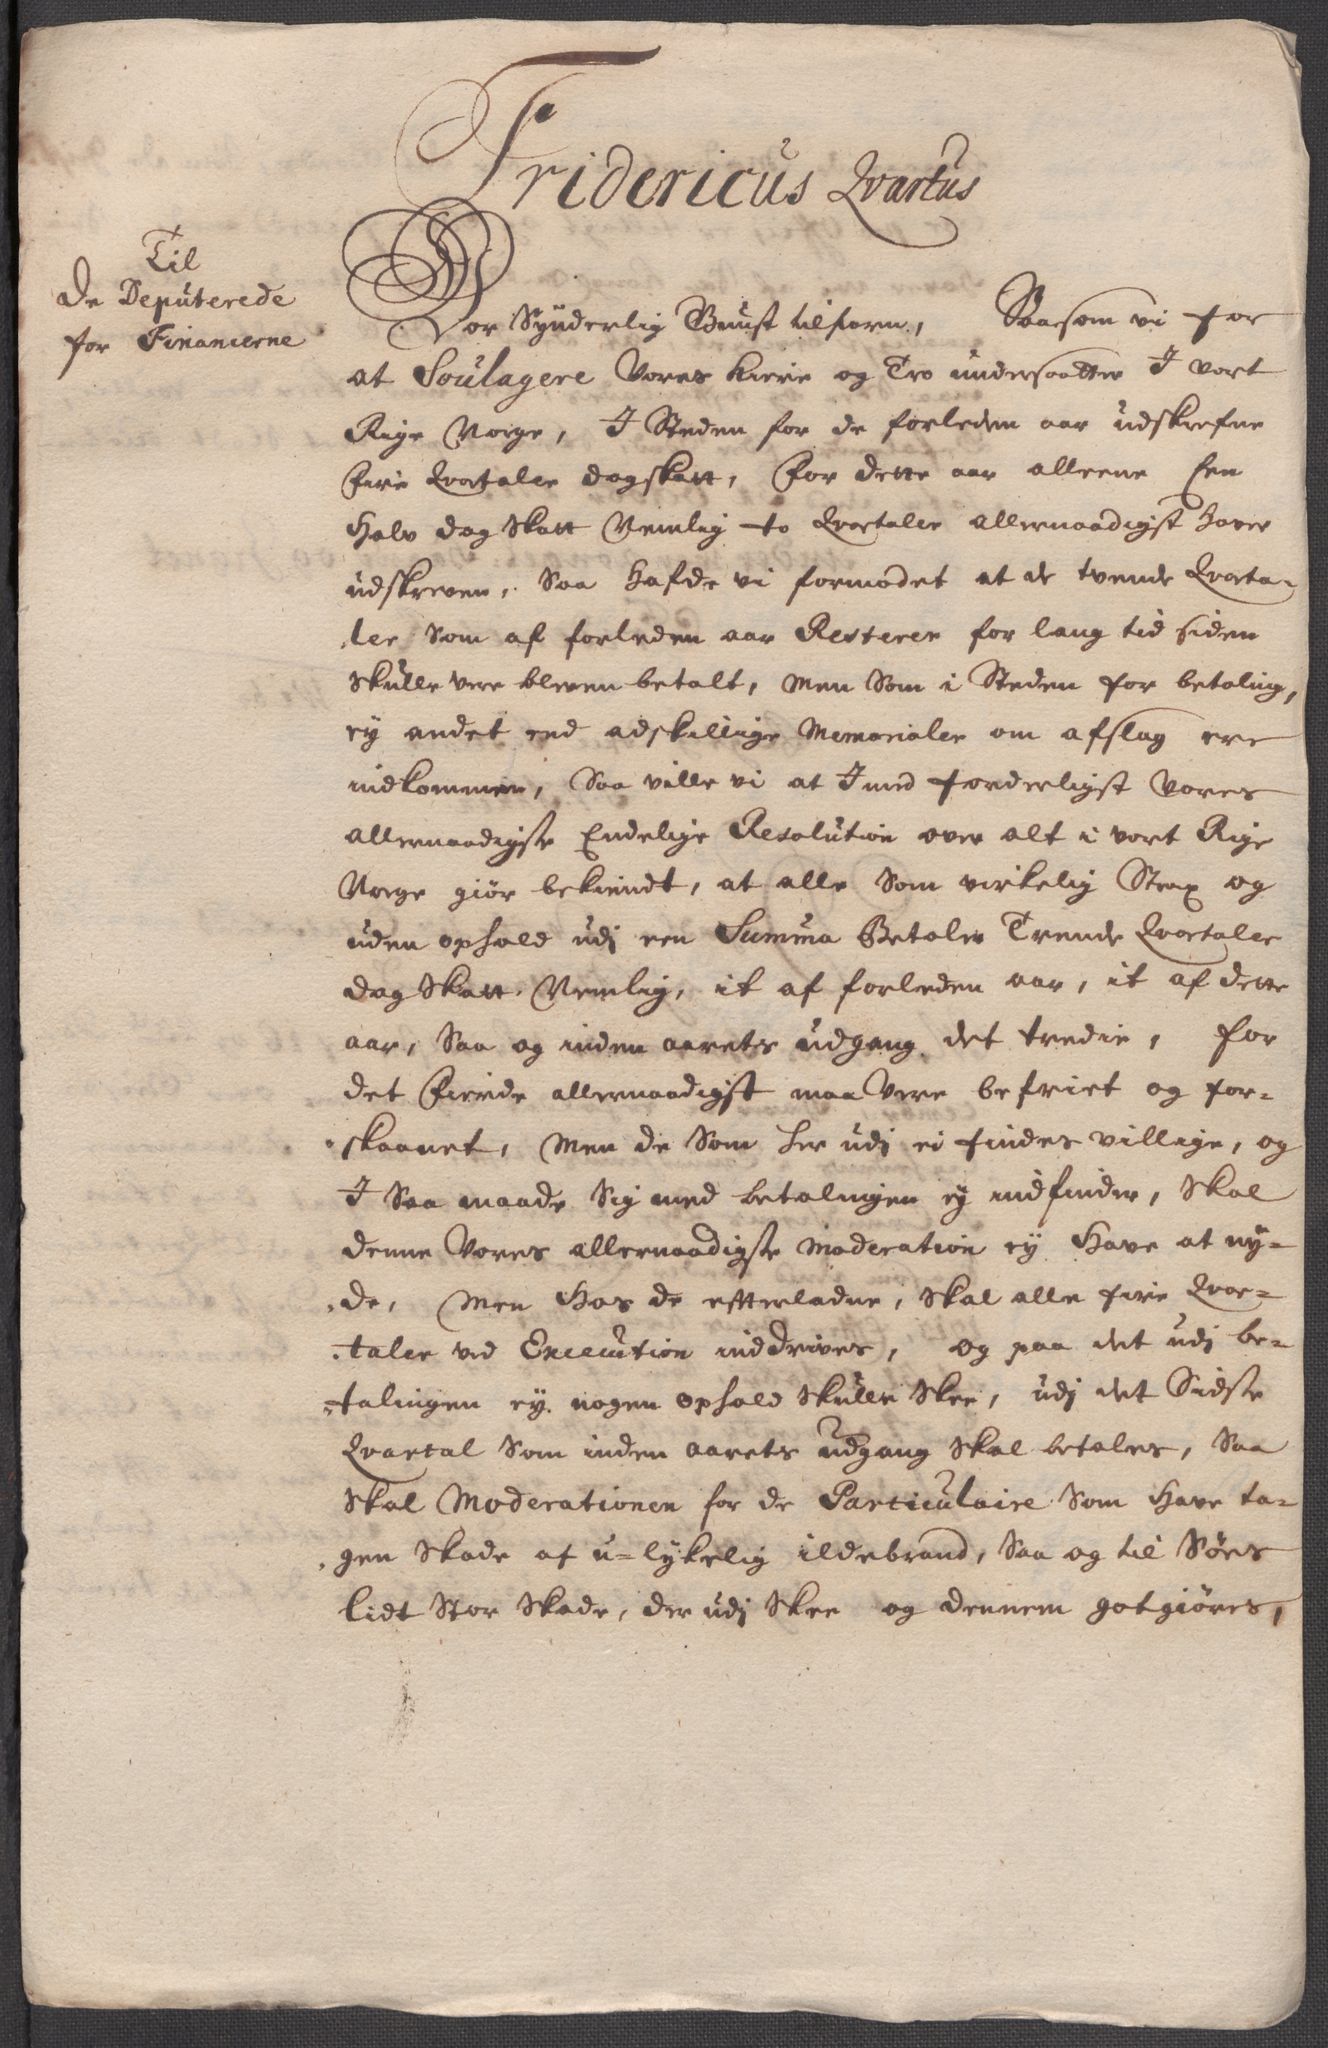 Fridericus Qvartus
Til
De Deputerede
for Financierne
Vor Synderlig Gunst tilforn, Saasom vi for
at Soulagere Vores kiere og Tro undersaatter I vort
Rige Norge, I Steden for de forleden aar udskrefne
Fire Qvartaler dagskatt, For dette aar alleene Een
Halv dag Skatt Nemlig to Qvartaler allernaadigst haver
udskreven, Saa hafde vi formodet at de tvende Qvarta-
ler Som af forleden aar Resterer for lang tid siden
Skulle være bleven betalt, Men Som i Steden for betaling,
ey andet end adskillige Memorialer om afslag ere
indkommen, Saa ville vi at I med forderligst Vores
allernaadigste Endelige Resolution over alt i vort Rige
Norge giør bekiendt, at alle Som virkelig Strax og
uden ophold udj een Summa Betaler Trende Qvartaler
dag Skatt, Nemlig, it af forleden aar, it af dette
aar, Saa og inden aarets udgang det tredie, for
det Fierde allernaadigst maa Være befriet og for-
skaanet, Men de Som her udj ei findes villige, og
I Saa maade Sig med betalingen ey indfinder, Skal
denne Vores allernaadigste Moderation ey Have at ny-
de, Men Hos de efterladne, Skal alle fire Qvar-
taler ved Execution inddrives, og paa det udj be-
talingen ey nogen ophold Skulle Skee, udj det Sidste
Qvartal Som inden aarets udgang Skal betales, Saa
Skal Moderationen for de Particulaire Som Have ta-
gen Skade af u-lykelig ildebrand, Saa og til Søes
lidt Stor Skade, der udj Skee og dennem gotgiøres,